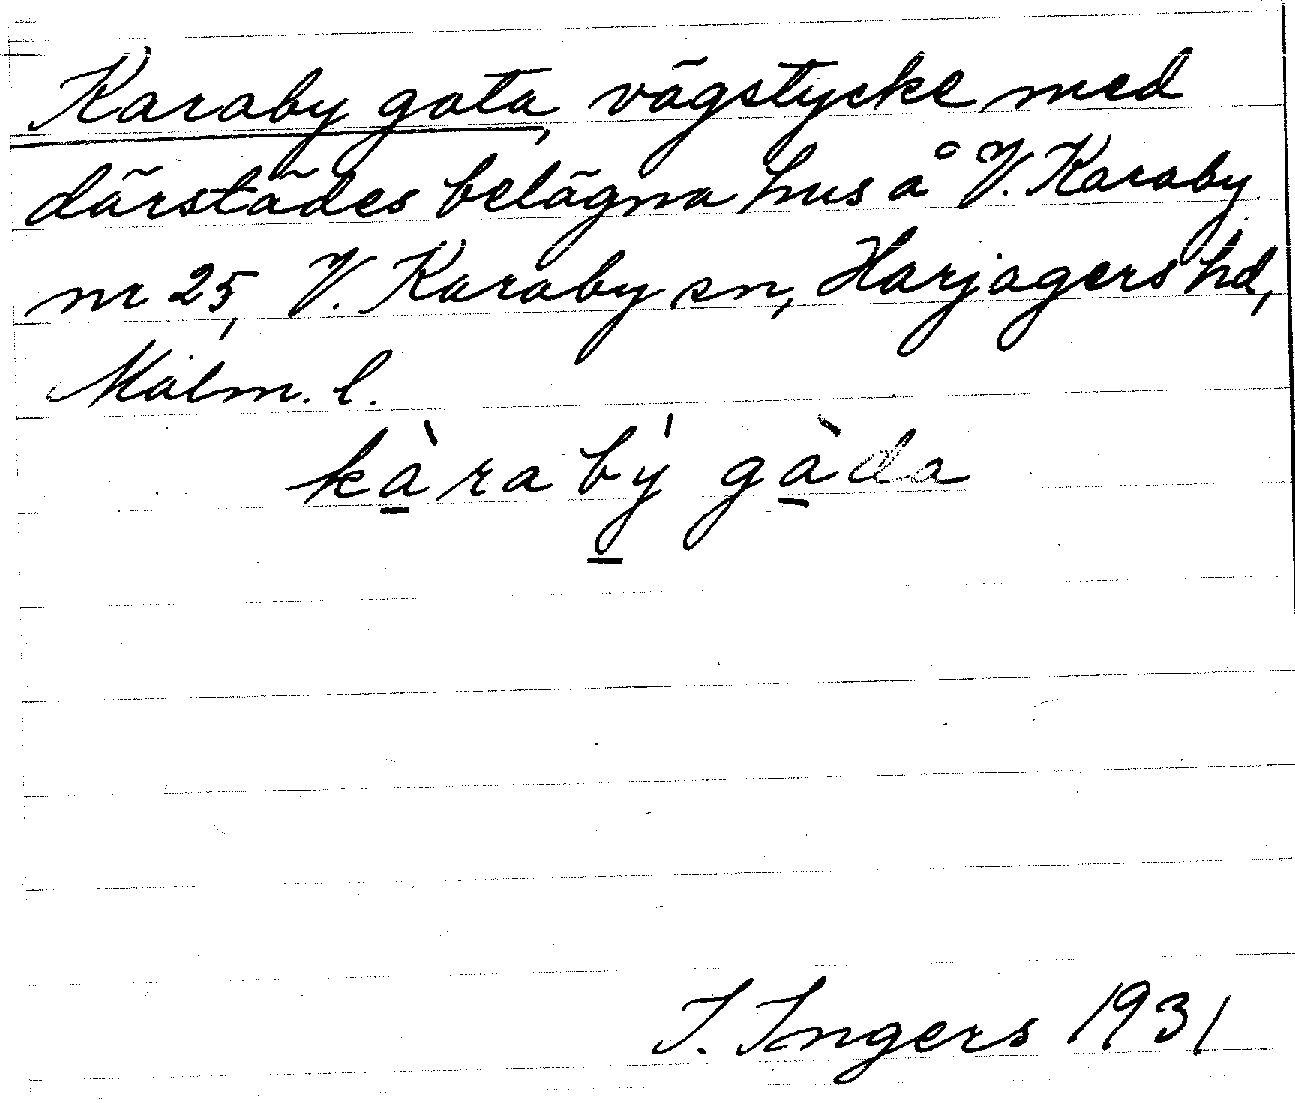 Karaby gata, vägstycke med
därstädes belägna hus å V. Karaby
nr 25, V. Karaby sn, Harjagers hd,
Malm. l.
kàrabý gàda
I. Ingers 1931